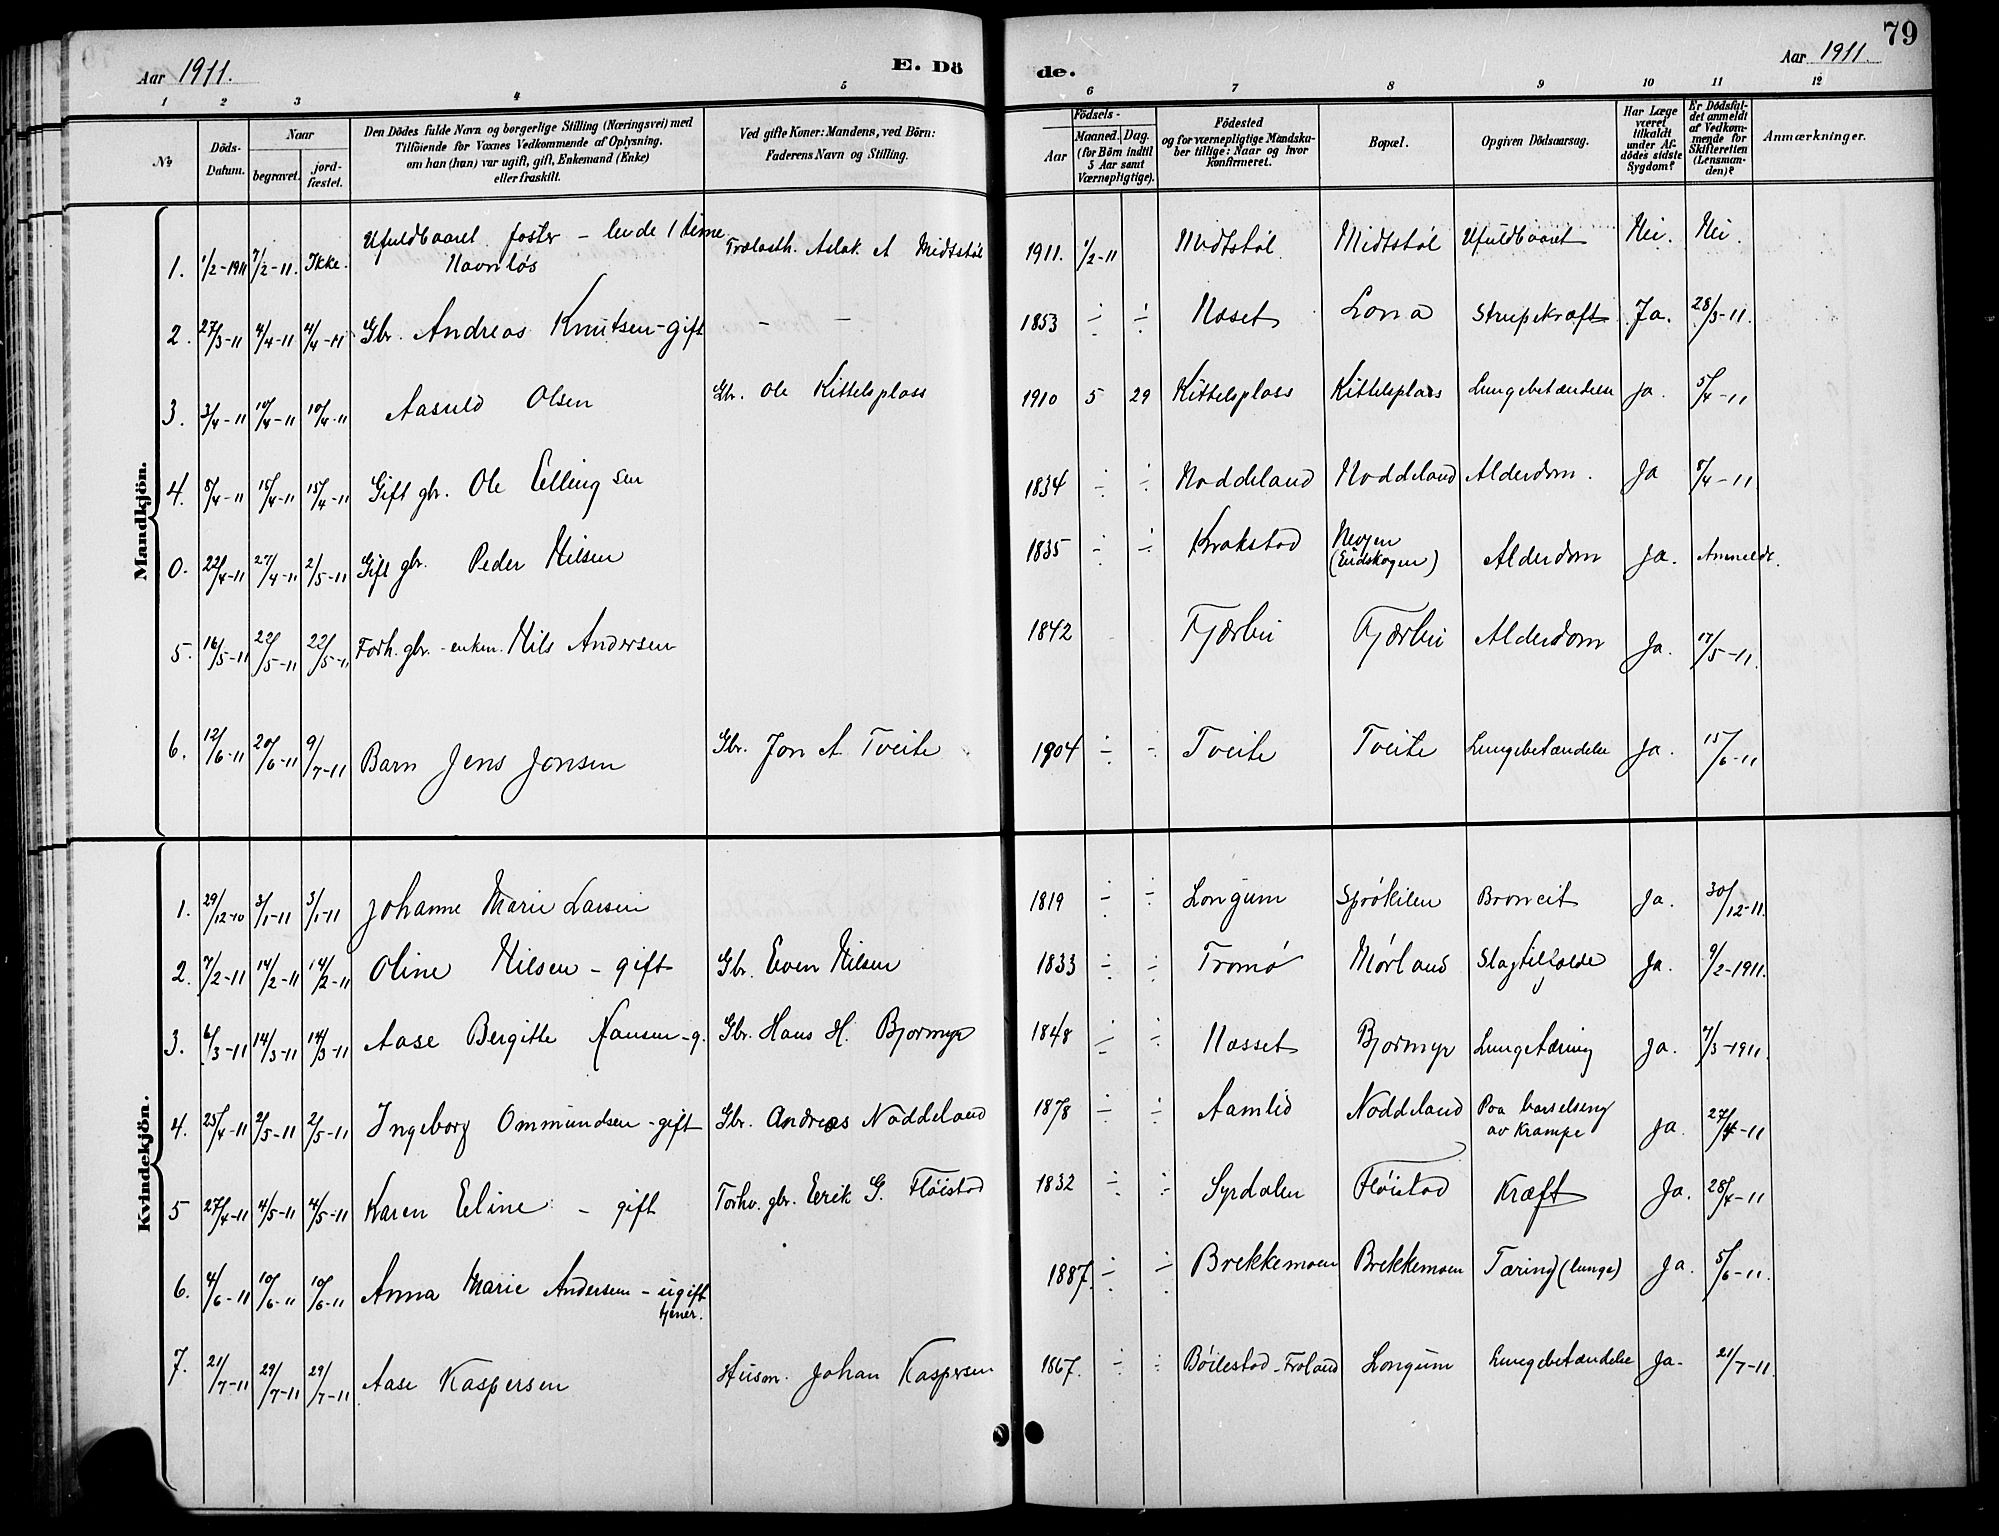 Aar 1911. E. Dö de. Aar 1911. 79
1 2 3 4 5 6 7 8 9 10 11 12
No Döds-Datum. Naar begravet. jord-fæstet. Den Dödes fulde Navn og borgerlige Stilling (Næringsvei) med Tilföiende for Voxnes Vedkommende af Oplysning, om han (han) var ugift, gift, Enkemand (Enke) eller fraskilt. Ved gifte Koner: Mandens, ved Börn: Faderens Navn og Stilling. Födsels- Aar Maaned. Dag. (for Börn indtil 5 Aar samt Værnepligtige). Födested og for værnepligtige Mandskaber tillige: Naar og hvor konfirmeret. Bopæl. Opgiven Dödsaarsag. Har Læge været tilkaldt under Afdödes sidste Sygdom? Er Dödsfaldet anmeldt af Vedkommende for Skifteretten (Lensmanden)? Anmærkninger.
Mandkjön.
1. 1/2-1911 7/2-11. Ikke. Ufuldbaaret foster - levde 1 time Navnløs Trælasth. Aslak A Midtstøl 1911. 1/2-11 Midtstøl Midtstøl Ufuldbaaret Nei. Nei.
2. 27/3-11 4/4-11 4/4-11 Gbr. Andreas Knutsen-gift - - 1853 ÷ ÷ Næset Lona Strupekræft Ja. 28/3-11.
3. 3/4-11 10/4-11 10/4-11 Aasuld Olsen Gbr. Ole Kittelsplass 1910 5 29 Kittelsplass Kittelsplass Lungebetændelse ja. 5/4-11
4. 5/4-11 15/4-11 15/4-11 Gift gbr. Ole Ellingsen 1834 ÷ ÷ Noddeland Noddeland Alderdom. Ja 5/4-11
0. 22/4-11 27/4-11 2/5-11 Gift gbr. Peder Nilsen 1835 ÷ ÷ Krokstad (Eidskogen) Alderdom Ja. Anmeldt.
5. 16/5-11 22/5-11 22/5-11 Forh. gbr. - enkem. Nils Andersen 1842 Fjærbu Fjærbu Alderdom Ja. 17/5-11.
6. 12/6-11 20/6-11 9/7-11 Barn Jens Jonsen Gbr. Jon A. Tveite 1904 ÷ ÷ Tveite Tveite Lungebetændelse Ja. 15/6-11
Kvindekjön.
1. 29/12-10 3/1-11 3/1-11 Johanne Marie Larsen 1819 ÷ ÷ Longum Sprøkilen Broncit Ja. 30/12-11.
2. 7/2-11 14/2-11 14/2-11 Oline Nilsen - gift Gbr. Even Nilsen 1833 ÷ ÷ Tromø Mørland Slagtilfælde Ja. 9/2-1911.
3. 6/3-11 14/3-11 14/3-11 Aase Bergitte Hansen-g. Gbr. Hans H. Bjormyr 1848 ÷ ÷ Næsset Bjormyr Lungetæring Ja. 7/3-1911.
4. 25/4-11 2/5-11 2/5-11 Ingeborg Ommundsen-gift Gbr. Andreas Noddeland 1878 ÷ ÷ Aamlid Noddeland Paa barselseng av Krampe Ja. 27/4-11
5 27/4-11 4/5-11 4/5-11 Karen Eline - gift Forhv. gbr. Eerik G. Fløistad 1832 ÷ ÷ Syrdalen Fløistad Kræft Ja. 28/4-11
6. 4/6-11 10/6-11 10/6-11 Anna Marie Andersen - ugift tjener. 1887. ÷ ÷ Brekkemoen Brekkemoen Tæring (lunge) Ja. 5/6-11.
7. 21/7-11 29/7-11 29/7-11 Aase Kaspersen Husm. Johan Kaspersen 1867. ÷ ÷ Bøilestad-Froland Longum Lungebetændelse Ja- 21/7-11.